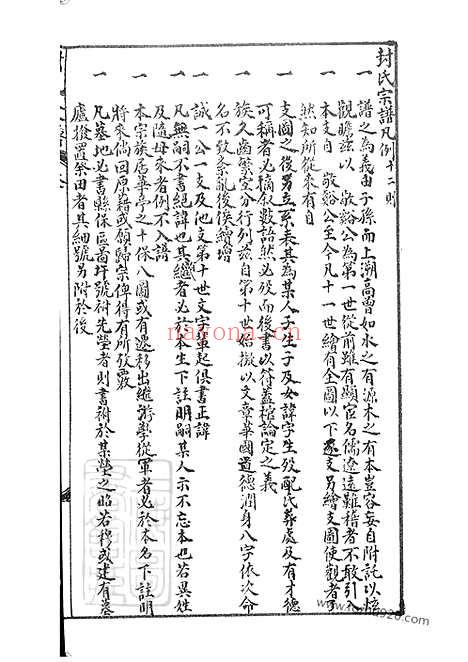 封氏宗譜凡例十二則
一 譜之為義由子孫而上溯高曾如水之有源木之有本豈容妄自附託以悮
觀瞻茲以 敬谿公為第一世從前雖有顯宦名儒遼遠難稽者不敢引入
一 本支自 敬谿公至今凡十一世繪有全圖以下逐支另繪支圖使觀者了
然知所從來有自
一 支圖之後另立系表其為某人子生子及女諱字生歿配氏葬處及有才德
可稱者必摘叙數語然必歿而後書以符蓋棺論定之義
一 族久齒繁空分行列茲自第十世始擬以文章華國道德潤身八字依次命
名不致紊亂後俟續增
一 誠一公一支及他支第十世文字輩起俱書正諱
一 凡無嗣不書絕諱也其繼者必於本生下註明嗣某人示不忘本也若異姓
及隨母來者例不入譜
一 本宗族居華亭之十保八圖或有遷移出繼游學從軍者必於本名下註明
將來倘回原籍或願歸宗俾得有所攷覈
一 凡墓地必書縣保區圖圩號祔先塋者則書祔於某塋之昭若穆或建有墓
廬撥置祭田者其細號另附於後
nayona.cn